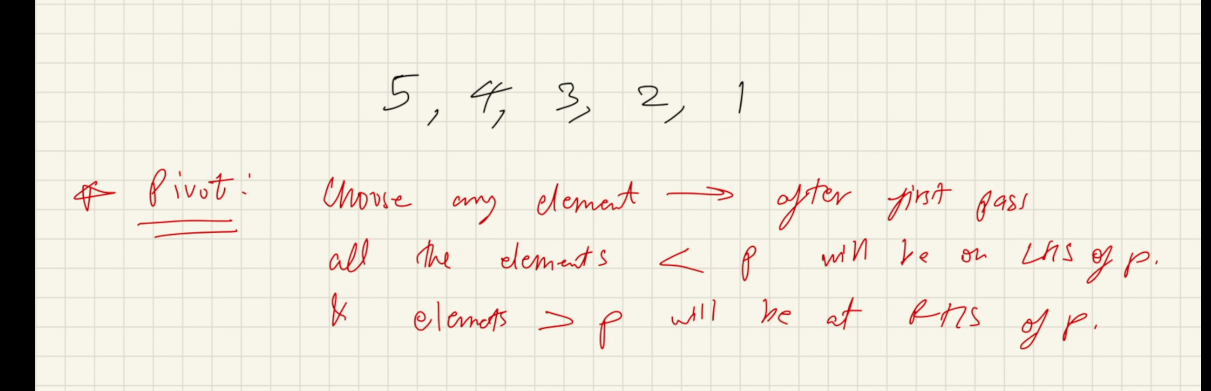 5, 4, 3, 2, 1
* Pivot: Choose any element → after first pass
all the elements < p will be on LHS of p.
& elements > p will be at RHS of p.